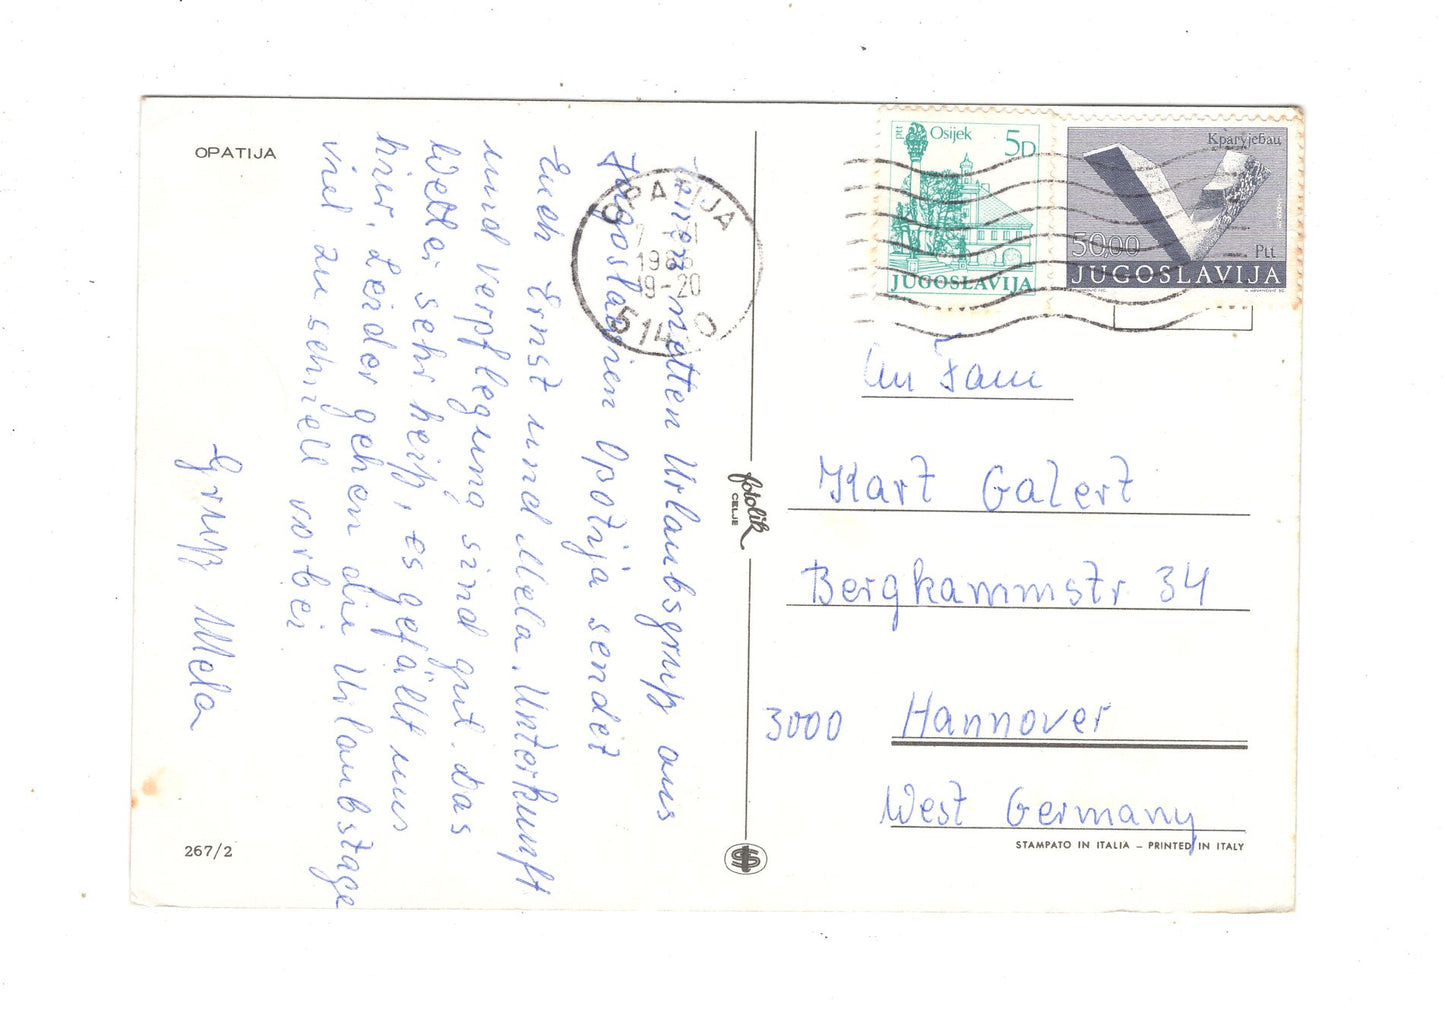 OPATIJA
Einen netten Urlaubsgruß aus
Jugoslawien Opatija sendet
Euch Ernst und Mela. Unterkunft
und Verpflegung sind gut. Das
Wetter sehr heiß, es gefällt uns
hier. Leider gehen die Urlaubstage
viel zu schnell vorbei
Gruß Mela
267/2
OPATIJA
1986
19-20
fotolik
CELJE
ptt Osijek 5D
JUGOSLAVIJA
50,00
Ptt
JUGOSLAVIJA
An Fam
Kart Galert
Bergkammstr. 34
3000 Hannover
West Germany
STAMPATO IN ITALIA – PRINTED IN ITALY